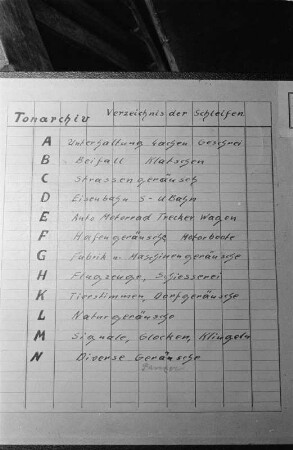 Tonarchiv Verzeichnis der Schleifen
A Unterhaltung Lachen Geschrei
B Beifall Klatschen
C Strassengeräusch
D Eisenbahn S-UBahn
E Auto Motorrad Trecker Wagen
F Hafengeräusche Motorboote
G Fabrik u. Maschinengeräusche
H Flugzeuge, Schiesserei
K Tierstimmen, Dorfgeräusche
L Naturgeräusche
M Signale, Glocken, Klingeln
N Diverse Geräusche